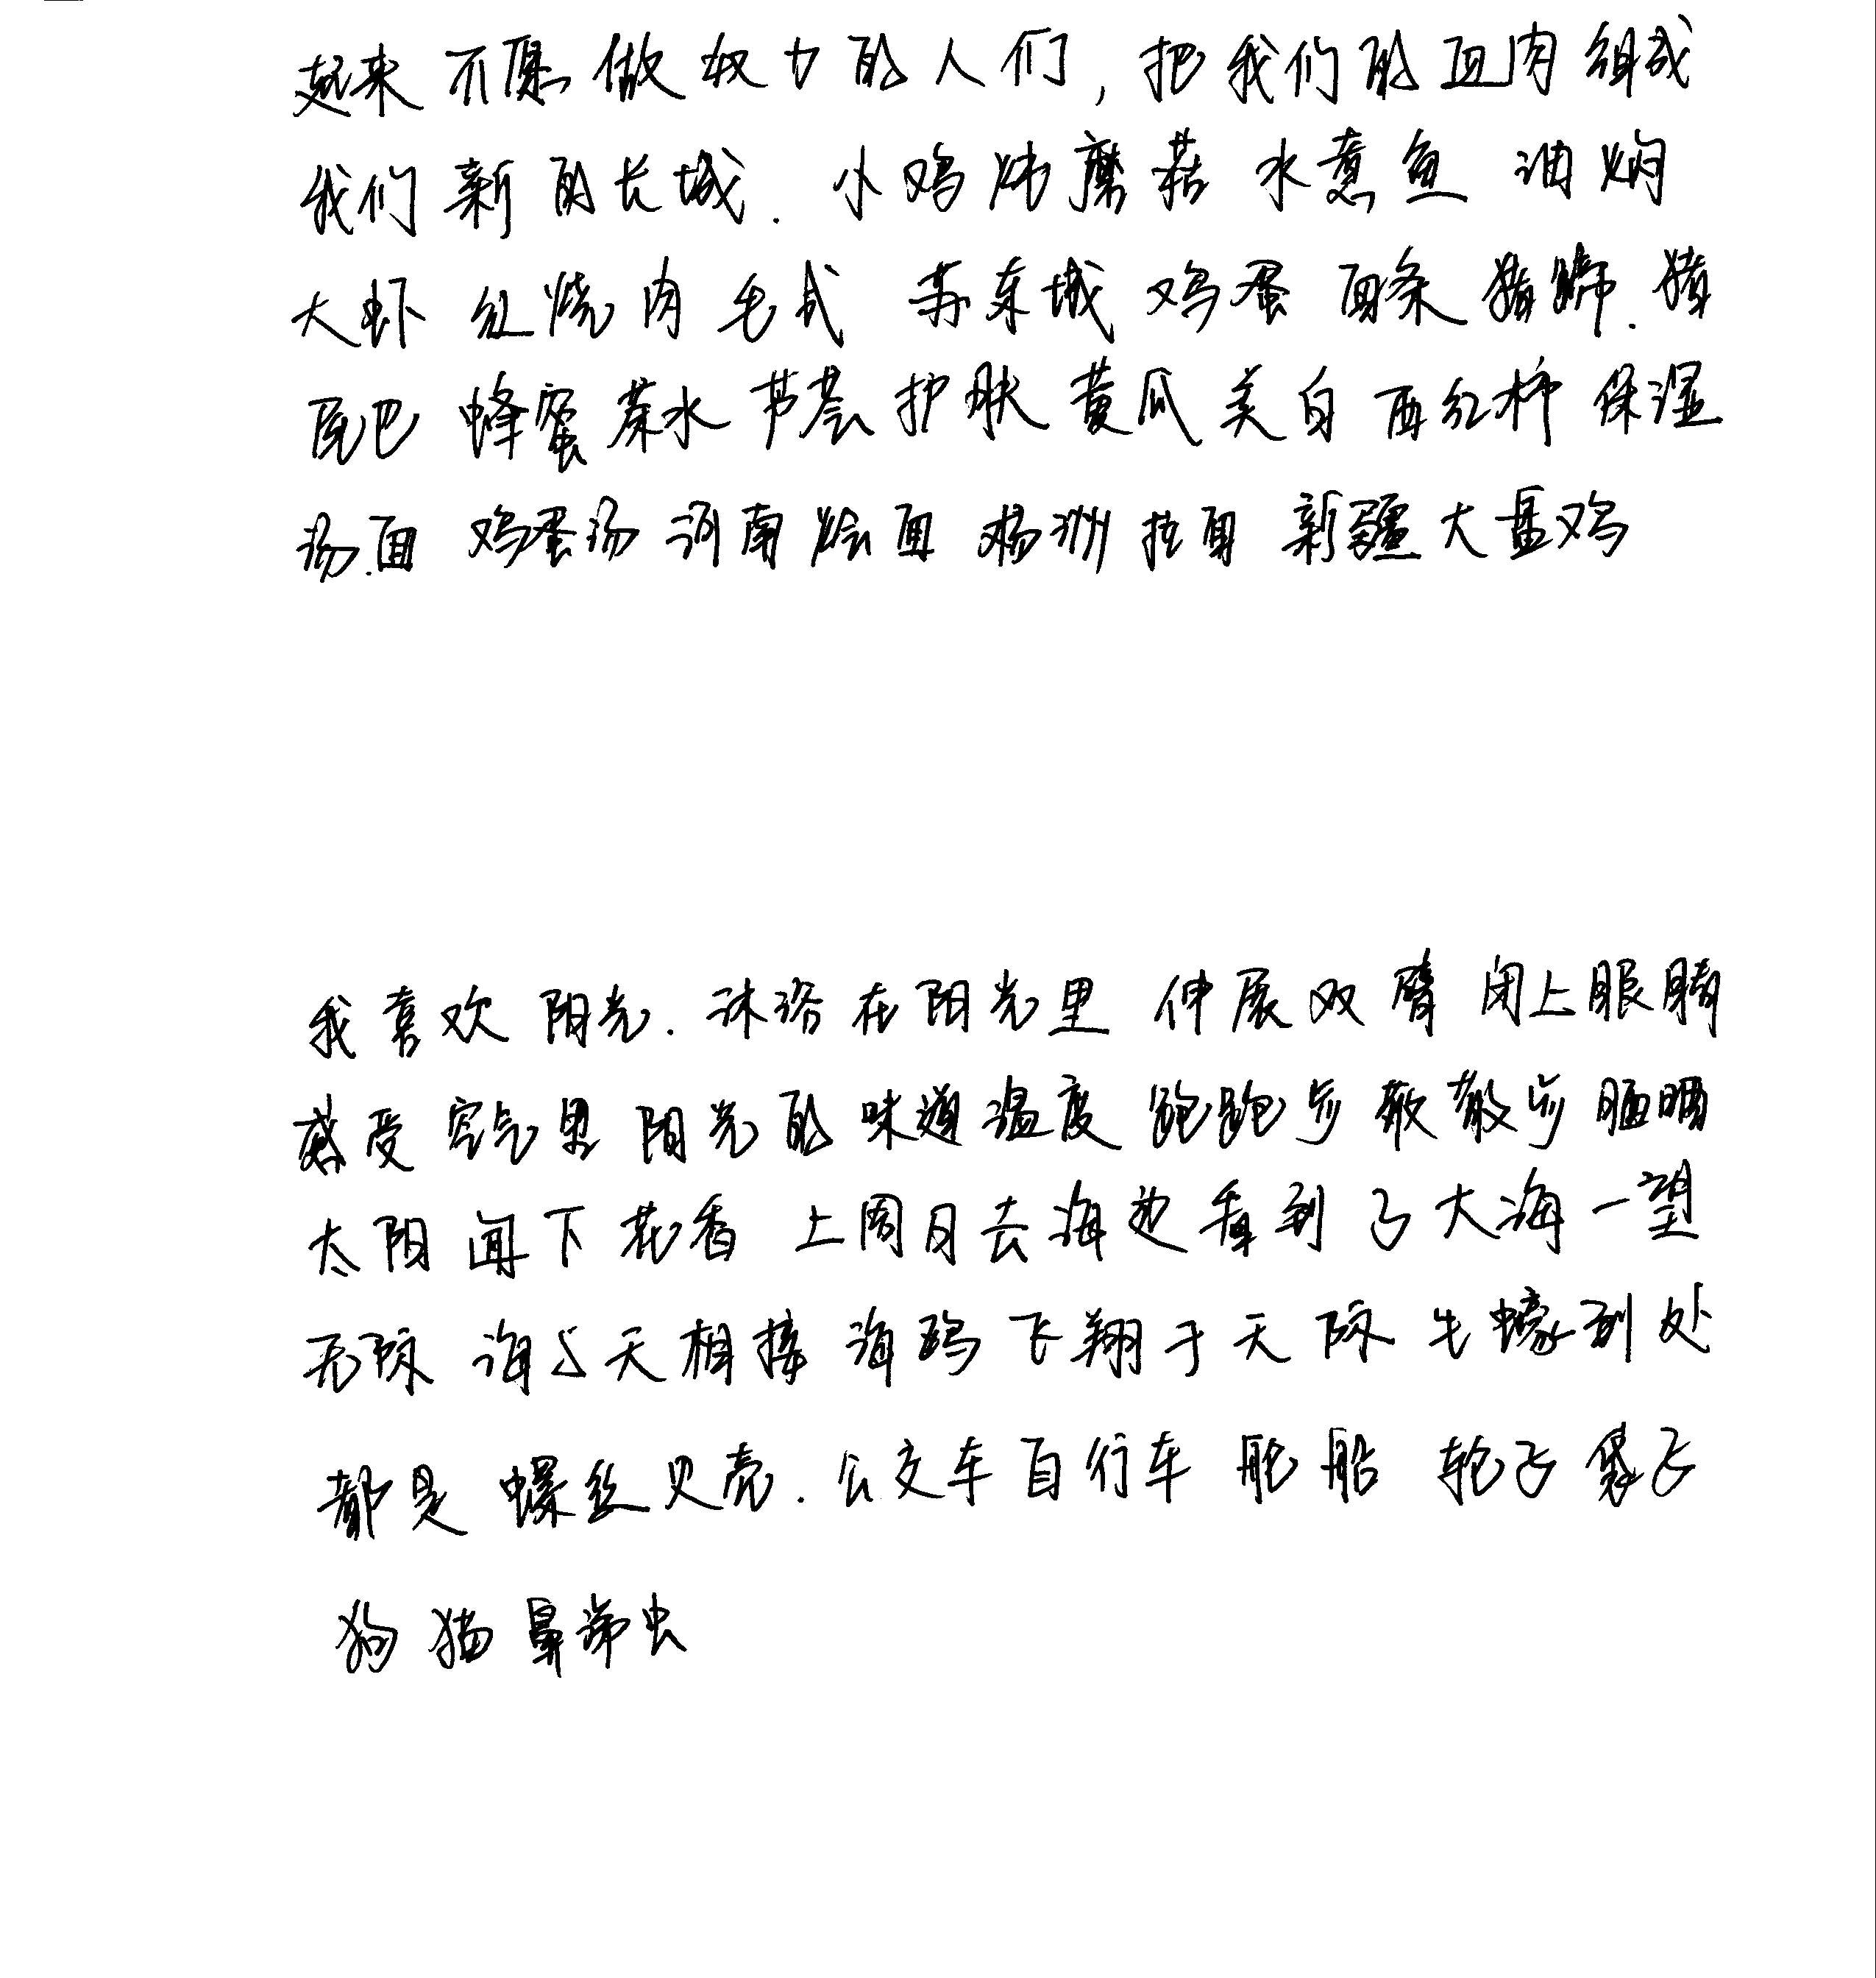 起来 不愿 做 奴力的人们,把我们的血肉组成
我们 新的长城. 小鸡炖蘑菇 水煮鱼 油焖
大虾 红烧肉 毛式 苏东城 鸡蛋 面条 猪蹄. 猪
尾巴 蜂蜜茶水 芦荟护肤 黄瓜美白 西红柿 保湿
汤面 鸡蛋汤 河南烩面 杨洲拉面 新疆大盘鸡
我喜欢 阳光. 沐浴在阳光里 伸展双臂 闭上眼睛
感受 空气里 阳光的味道温度 跑跑步 散散步 晒晒
太阳 闻下花香 上周日去海边看到了大海一望
无际 海与天相接 海鸥飞翔于天际 生蠔到处
都是 螺丝贝壳. 公交车 自行车 舵船 轮子 袋子
狗 猫 鼻涕虫